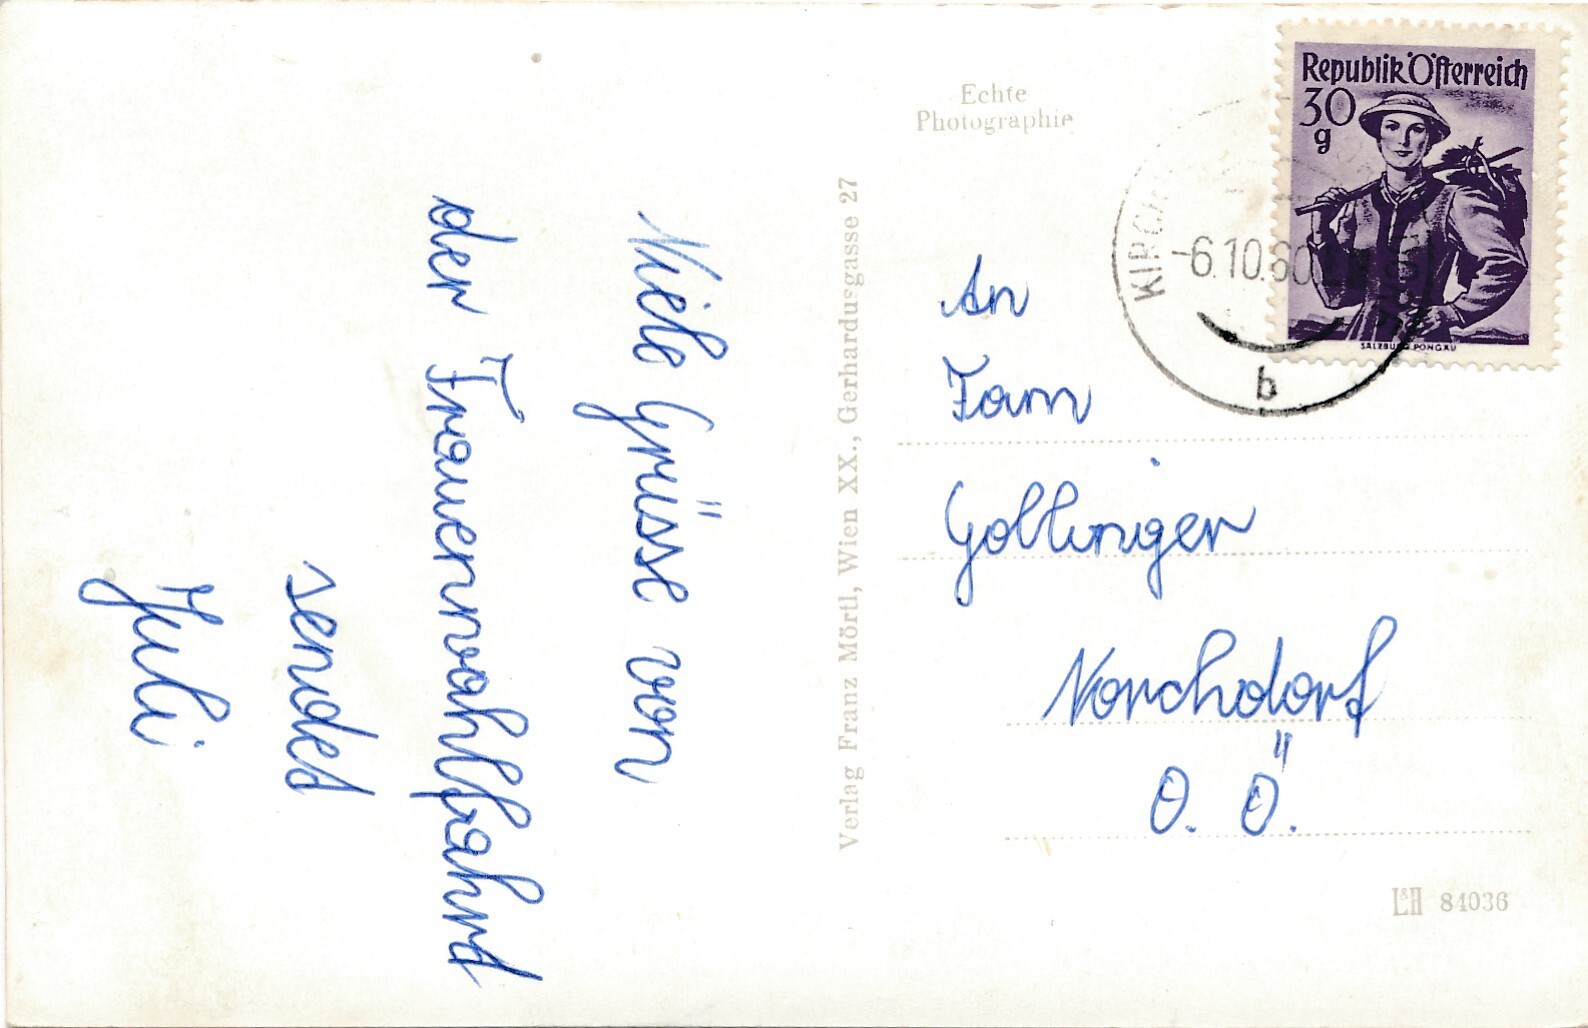 Viele Grüsse von
der Frauenwahlfahrd
sendet
Juli
Echte
Photographie
Verlag Franz Mörtl, Wien XX., Gerhardusgasse 27
Republik Österreich
30
g
SALZBURG, PONGAU
-6.10.60
b
An
Fam
Gollinger
Vorchdorf
O. Ö.
L&H 84036